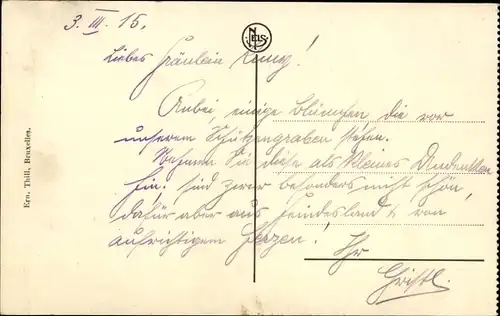 3. III. 15.
NELS
Liebes Fräulein !
Anbei, einige Blümchen, die vor
unserem Schützengraben stehen.
Nehmen Sie diese als kleines Andenken
hin. sind zwar besonders nicht schön,
dafür aber aus Feindesland & von
aufrichtigem Herzen!
Ihr
Christl.
Ern. Thill, Bruxelles.